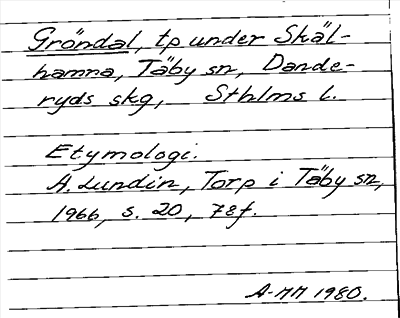 Gröndal, tp under Skäl-
hamra, Täby sn, Dande-
ryds skg, Sthlms l.
Etymologi.
A. Lundin, Torp i Täby sn,
1966, s. 20, 78f.
A-MM 1980.